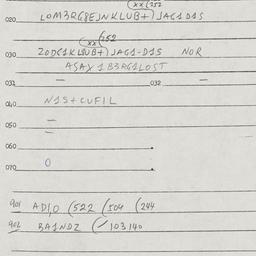 (xx(252
020 LOM3RG8EJNKLUB+) JAG1D1S
(xx(252
030 ZOD(1KLUB+) JAG1-D1S NOR
ASAX 1B3RG1LOST
031 — 032 —
040 N1S+CUFIL
050 —
060
070 0
901 AD1,0 (522 (504 (244
902 BA1NDZ (/103140